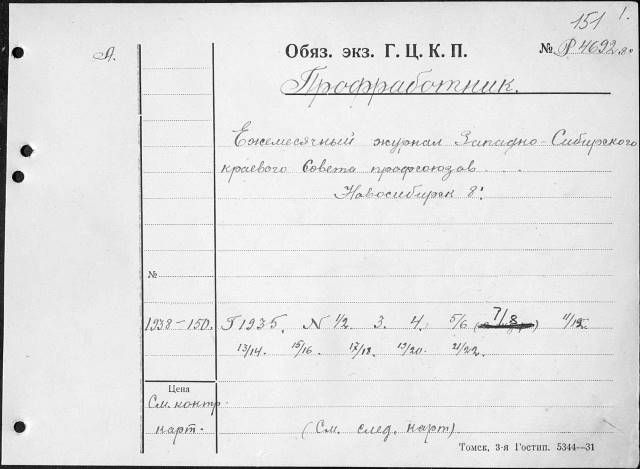 151 1.
Л. Обяз. экз. Г. Ц. К. П. № Р 4692 8°
Профработник.
Ежемесячный журнал Западно-Сибирского
краевого Совета профсоюзов . . .
Новосибирск 8°.
№
1938-150. Г 1935. N 1/2 3. 4. 5/6 7/8 11/12
13/14. 15/16. 17/18. 19/20. 21/22.
Цена
См. контр.
карт. (См. след. карт)
Томск, 3-я Гостип. 5344—31